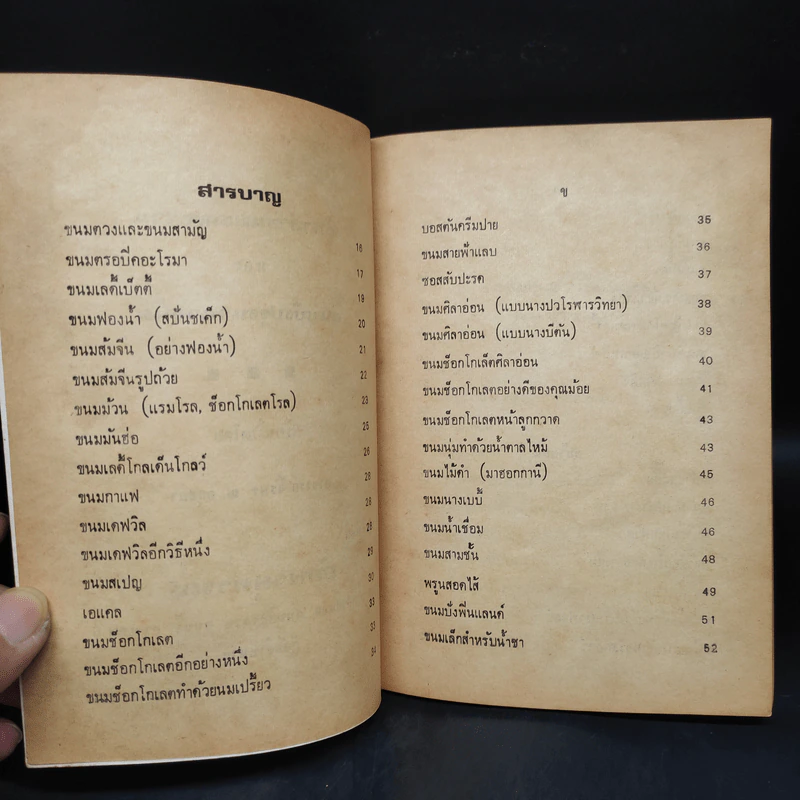 สารบาญ
ขนมตวงและขนมสามัญ 16
ขนมตรอปิคอะโรมา 17
ขนมเลดี้เบ็ตตี้ 19
ขนมฟองน้ำ (สปั่นชเค็ก) 20
ขนมส้มจีน (อย่างฟองน้ำ) 21
ขนมส้มจีนรูปถ้วย 22
ขนมม้วน (แรมโรล, ช็อกโกเลตโรล) 23
ขนมมันฮ่อ 25
ขนมเลดี้โกลเด็นโกลว์ 26
ขนมกาแฟ 28
ขนมเดฟวิล 28
ขนมเดฟวิลอีกวิธีหนึ่ง 28
ขนมสเปญ 29
เอแคล 30
ขนมช็อกโกเลต 33
ขนมช็อกโกเลตอีกอย่างหนึ่ง 33
ขนมช็อกโกเลตทำด้วยนมเปรี้ยว 34
ข
บอสตันครีมปาย 35
ขนมสายฟ้าแลบ 36
ซอสสับปะรด 37
ขนมศิลาอ่อน (แบบนางปวโรฬารวิทยา) 38
ขนมศิลาอ่อน (แบบนางบีตัน) 39
ขนมช็อกโกเล็ตศิลาอ่อน 40
ขนมช็อกโกเลตอย่างดีของคุณม้อย 41
ขนมช็อกโกเลตหน้าลูกกวาด 43
ขนมนุ่มทำด้วยน้ำตาลไหม้ 43
ขนมไม้ดำ (มาฮอกกานี) 45
ขนมนางเบบี้ 46
ขนมน้ำเชื่อม 46
ขนมสามชั้น 48
พรูนสอดไส้ 49
ขนมบั่งฟีนแลนด์ 51
ขนมเล็กสำหรับน้ำชา 52